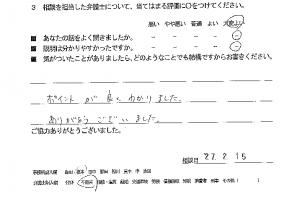 3 相談を担当した弁護士について、当てはまる評価に○をつけてください。
悪い やや悪い 普通 よい 大変よい
■ あなたの話をよく聞きましたか。
■ 説明は分かりやすかったですか。
■ 気がついたことがありましたら、どのようなことでも結構ですからお書きください。
ポイントが良くわかりました。
ありがとうございました。
ご協力ありがとうございました。
相談日 27.2.15